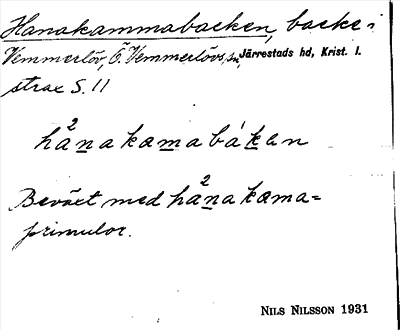 Hanakammabacken, backe i
Vemmerlöv, Ö. Vemmerlövs sn, Järrestads hd, Krist. l.
strax S. 11
2
hanakamabákan
Beväxt med hanakama=
2
primulor.
NILS NILSSON 1931